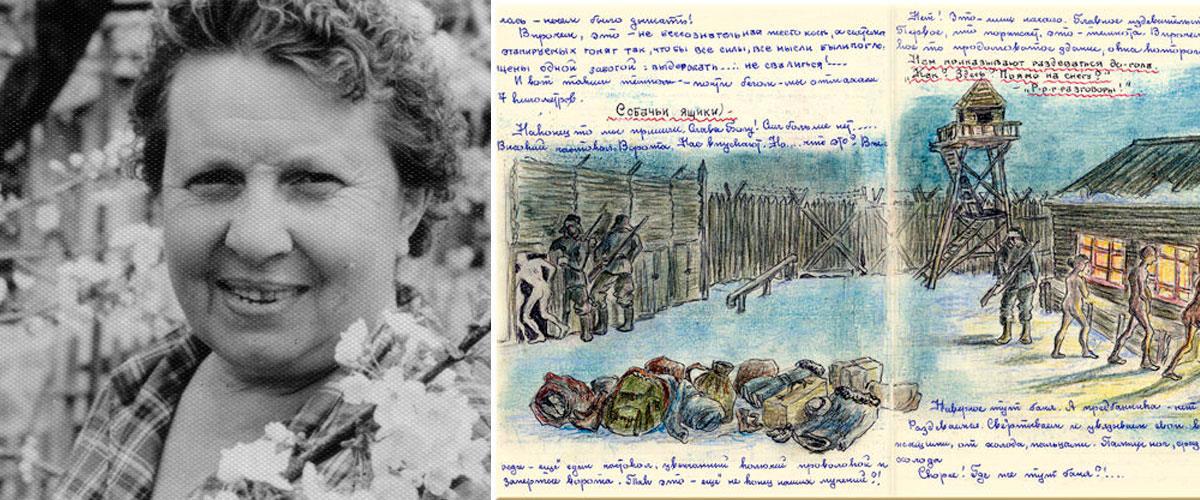 лась – нечем было дышать!
Впрочем, это – не бессознательная жестокость, а система
этапируемых гонят так, чтобы все силы, все мысли были погло-
щены одной заботой: выдержать... не свалиться!...
И вот таким темпом – почти бегом – мы отмахали
7 километров.
Собачьи ящики)
Наконец то мы пришли. Слава Богу! Сил больше нет.....
Высокий частокол. Ворота. Нас впускают. Но... что это?
ещё один частокол, увенчанный колючей проволокой и
запертые ворота. Так это – ещё не конец наших мучений?!
Нет! Это – лишь начало. Главное издевательст
Первое, что поражает, это – темнота. Впрочем
кое то продолговатое здание, окна котор
Нам приказывают раздеваться до-гола.
„Как? Здесь? Прямо на снегу?"
– „Р-р-разговоры!"
Наверное тут баня. А предбанника – нет
Раздеваемся. Свёртываем и увязываем свои в
жащими, от холода, пальцами.
холода
Скорее! Где же тут баня?!....